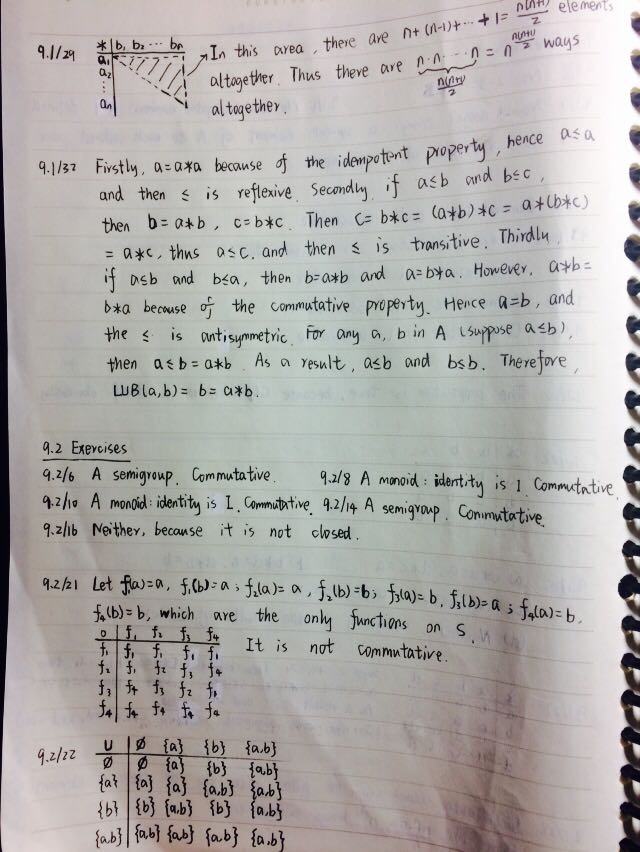 9.1/29
* b₁ b₂ ⋯ bₙ
a₁
a₂
⋮
aₙ
In this area, there are n+(n-1)+⋯+1 = n(n+1)/2 elements
altogether. Thus there are n·n⋯n = n^(n(n+1)/2) ways
n(n+1)/2
altogether.
9.1/32 Firstly, a=a*a because of the idempotent property, hence a≤a
and then ≤ is reflexive. Secondly, if a≤b and b≤c,
then b=a*b, c=b*c. Then c=b*c=(a*b)*c=a*(b*c)
=a*c, thus a≤c, and then ≤ is transitive. Thirdly,
if a≤b and b≤a, then b=a*b and a=b*a. However, a*b=
b*a because of the commutative property. Hence a=b, and
the ≤ is antisymmetric. For any a, b in A (suppose a≤b),
then a≤b=a*b. As a result, a≤b and b≤b. Therefore,
LUB(a,b)=b=a*b.
9.2 Exercises
9.2/6 A semigroup. Commutative. 9.2/8 A monoid: identity is 1. Commutative.
9.2/10 A monoid: identity is I. Commutative. 9.2/14 A semigroup. Commutative.
9.2/16 Neither, because it is not closed.
9.2/21 Let f₁(a)=a, f₁(b)=a; f₂(a)=a, f₂(b)=b; f₃(a)=b, f₃(b)=a; f₄(a)=b,
f₄(b)=b, which are the only functions on S.
o f₁ f₂ f₃ f₄ It is not commutative.
f₁ f₁ f₁ f₁ f₁
f₂ f₁ f₂ f₃ f₄
f₃ f₄ f₃ f₂ f₁
f₄ f₄ f₄ f₄ f₄
9.2/22
U Ø {a} {b} {a,b}
Ø Ø {a} {b} {a,b}
{a} {a} {a} {a,b} {a,b}
{b} {b} {a,b} {b} {a,b}
{a,b} {a,b} {a,b} {a,b} {a,b}